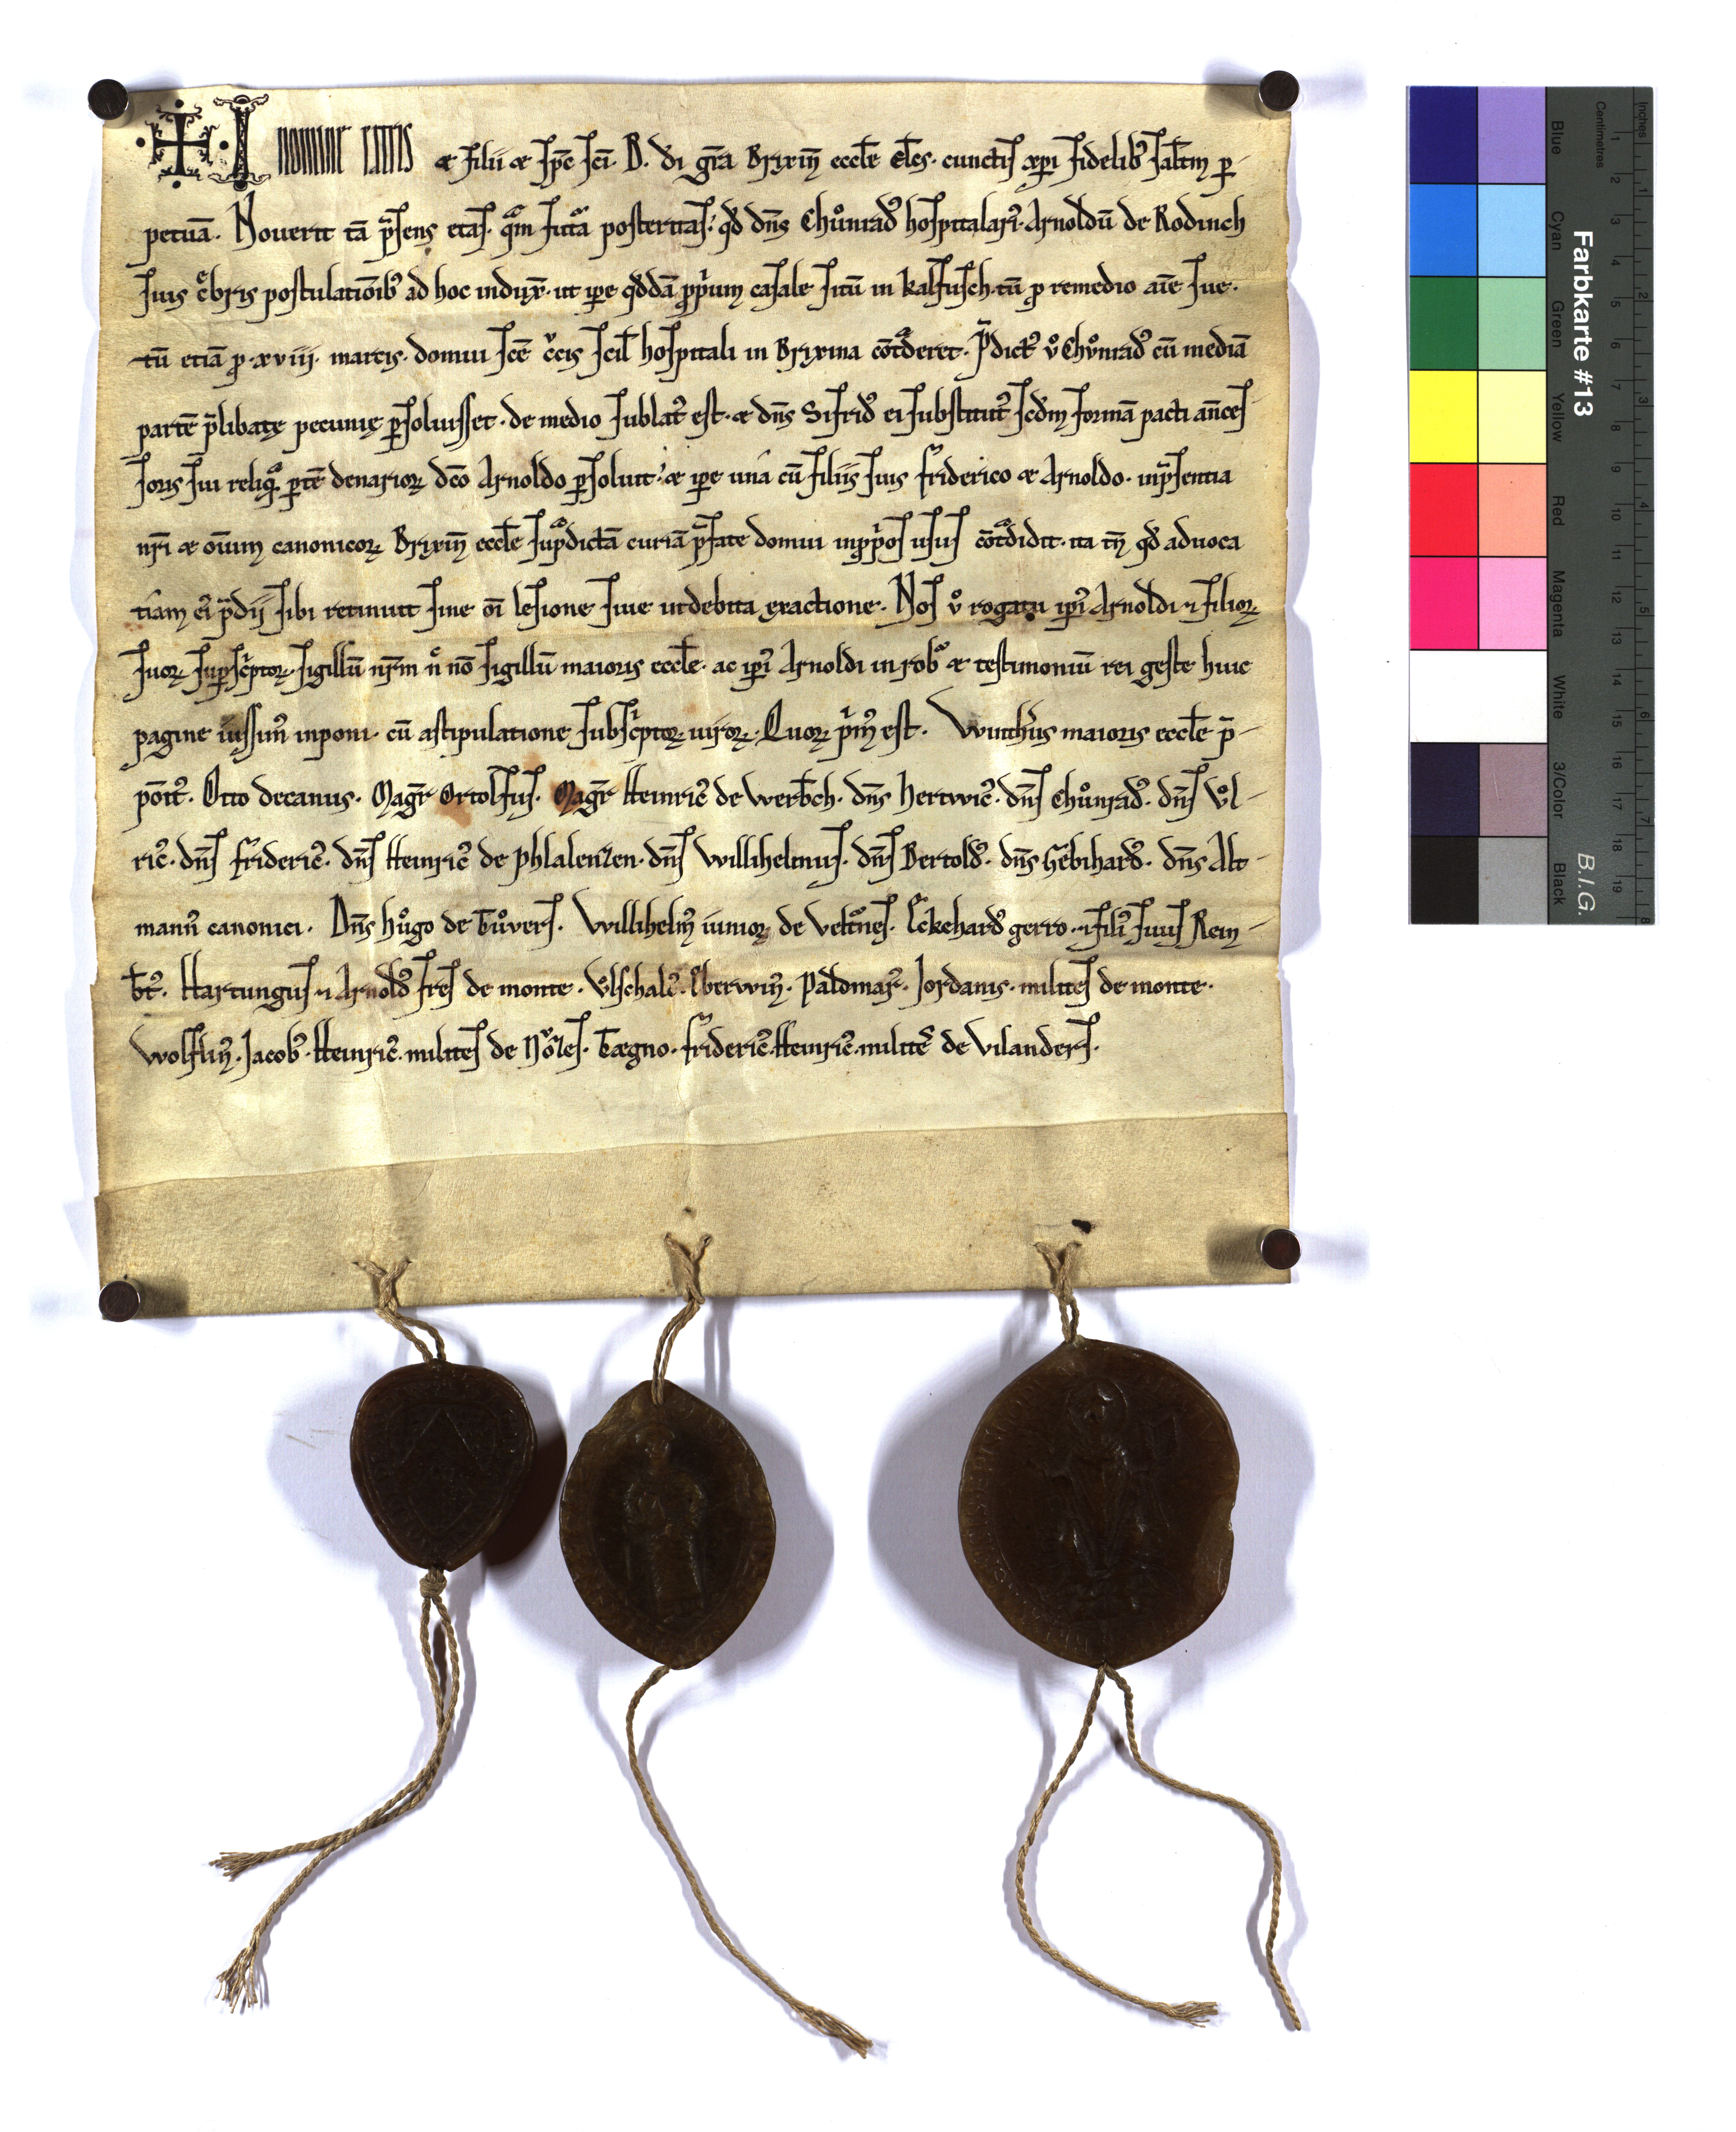 I nomine patris & filii & sp̄c sci. B. di gr̄a Brixin̄ eccl̄e ep̄s. cunctis xp̄i fidelib⁹ salt̄m p̄-
petuā. Noverit tā p̄sens etas. qͣm futͣa posteritas: qd̄ dn̄s Chůnrad⁹ hospitalari⁹. Arnoldū de Rodinch
suis c̄bris postulatiōib⁹ ad hoc indux̄. ut ip̄e qd̄dā pp̄um casale sitū in kalsusch. tū p̱ remedio aīe sue.
tū etiā p̱ .xviii. marcis. domui sc̄e c̄cis scil̄ hospitali in Brixina cōtͣderet. P̄dict⁹ v̊ Chv̊nrad⁹ cū mediā
partē p̄libatę pecunię p̱soluisset. de medio sublat⁹ est. & dn̄s Sifrid⁹ ei substitut⁹ scd̄m formā pacti an̄ces-
soris sui reliqͣ p̱tē denarioꝝ dc̄o Arnoldo p̱soluit: & ip̄e unā cū filiis suis friderico & Arnoldo. in p̄sentia
nr̄i & oīum canonicoꝝ Brixin̄ eccl̄e sup̱dictā curiā p̄fate domui in pp̄os usus cōtͣdidit. ita tn̄ qd̄ aduoca
tiam ei⁹ p̄dii sibi retinuit sine oī lesione siue indebita exactione. Nos v̊ rogatu ip̄i⁹ Arnoldi ⁊ filioꝝ
suoꝝ sup̱sc̄ptoꝝ. sigillū nr̄m n̊ nō sigillū maioris eccl̄e. ac ip̄i⁹ Arnoldi in rob⁹ & testimoniū rei geste huic
pagine iussim⁹ inponi. cū astipulatione subsc̄ptoꝝ uiroꝝ. Quoꝝ p̄m⁹ est. Winth̄us maioris eccl̄e p̄-
pōit⁹. Otto decanus. Magr̄ Ortolfus. Magr̄ Heinric⁹ de Werb̄ch. dn̄s Hertwic⁹. dn̄s Chůnrad⁹. dn̄s Vͦl-
ric⁹. dn̄s frideric⁹. dn̄s Heinric⁹ de Phlalenzen. dn̄s Willihelmus. dn̄s Bertold⁹. dn̄s Gebihard⁹. dn̄s Alt-
mann⁹ canonici. Dn̄s Hůgo de Tůvers. Willihelm⁹ iunior de Veltůnes. Eckehard⁹ gerro. ⁊ fili⁹ suus Rein-
b̄t⁹. Hartungus ⁊ Arnold⁹ fr̄es de monte. Vͦlschalc⁹. Eberwin⁹. Paldmar⁹. Jordanis. milites de monte.
Wolflin⁹. Jacob⁹. Heinric⁹. milites de Nǒzes. Tægno. frideric⁹. Heinric⁹. milites de Vilanders.
Farbkarte #13
B.I.G.
Inches
Centimetres
Blue
Cyan
Green
Yellow
Red
Magenta
White
3/Color
Black
1 2 3 4 5 6 7 8 9 10 11 12 13 14 15 16 17 18 19
1 2 3 4 5 6 7 8